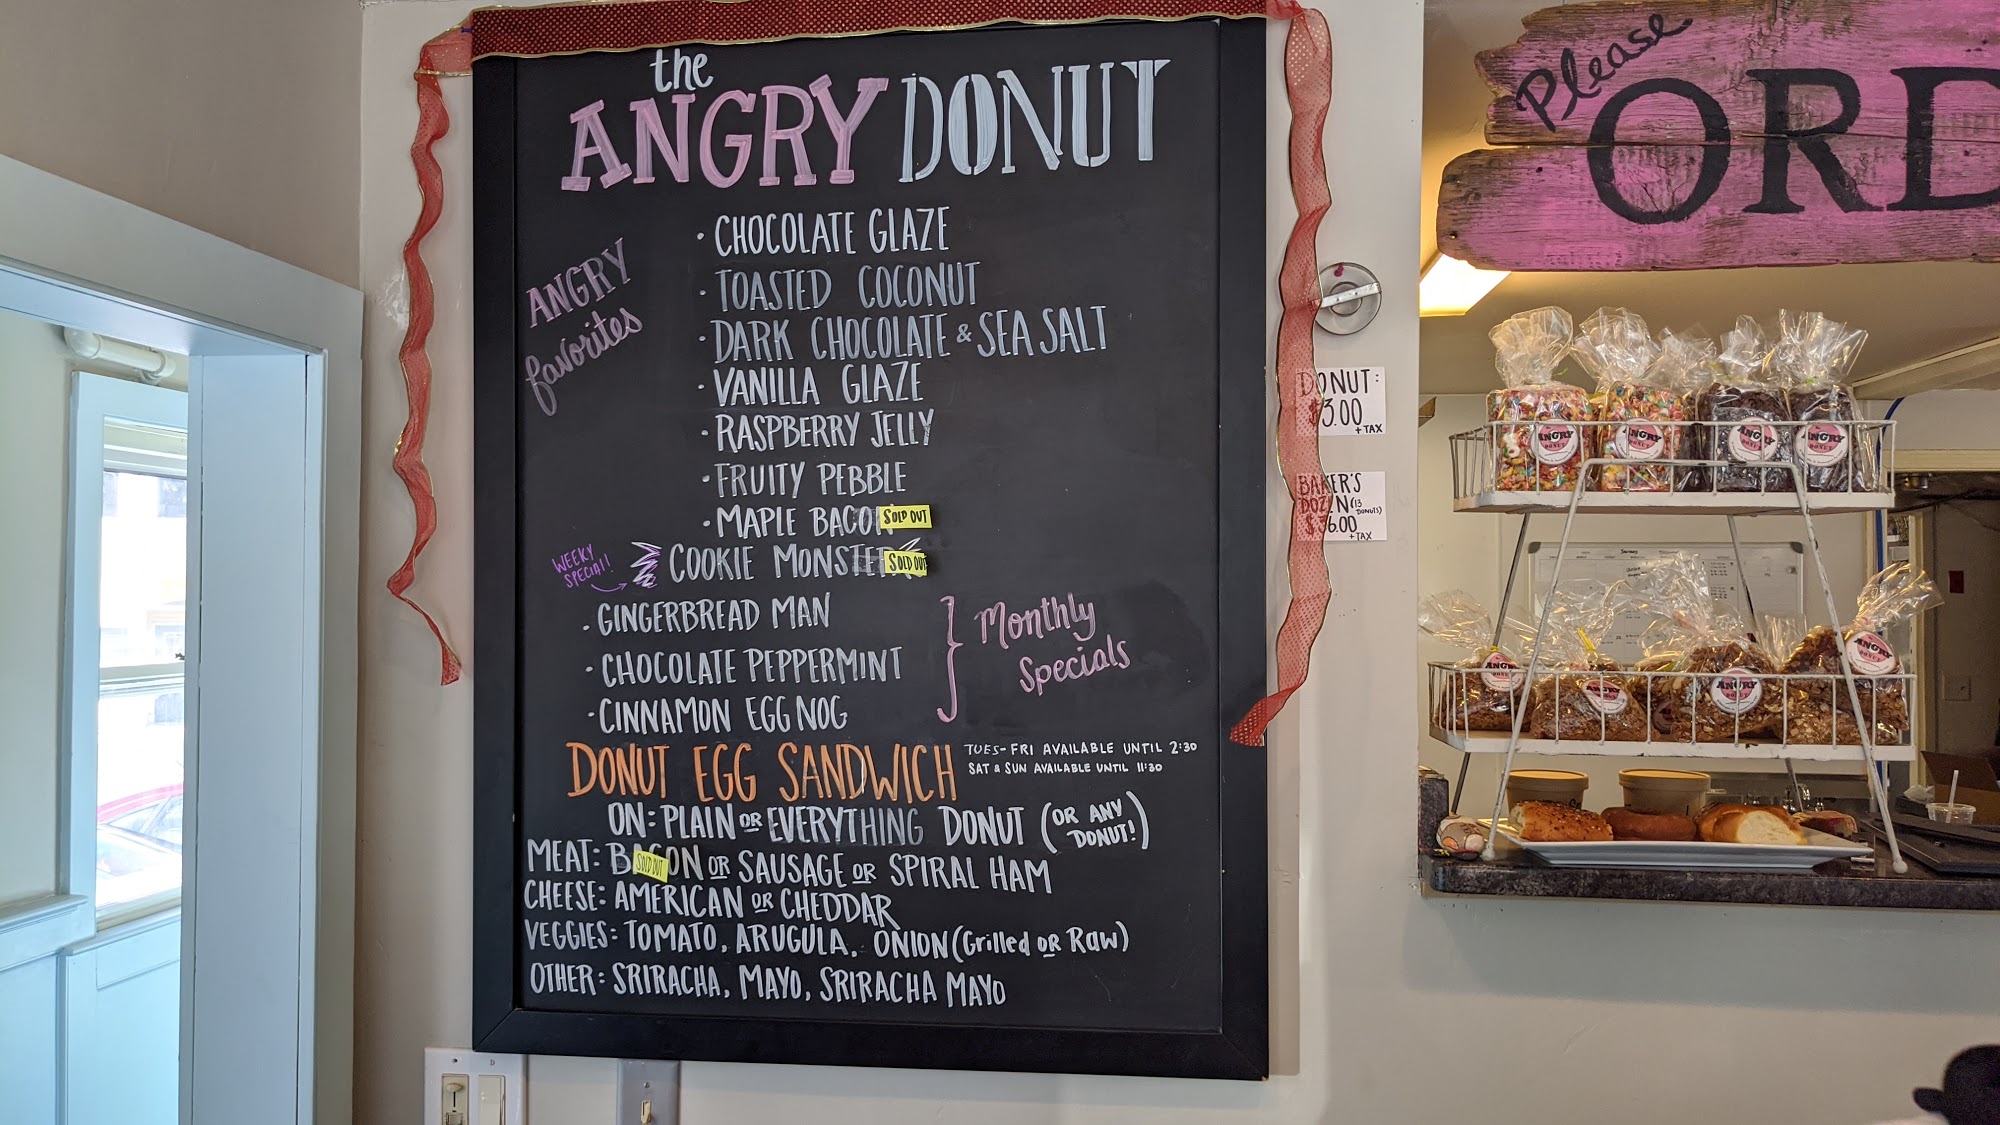 the
ANGRY DONUT
ANGRY
favorites
· CHOCOLATE GLAZE
· TOASTED COCONUT
· DARK CHOCOLATE & SEA SALT
· VANILLA GLAZE
· RASPBERRY JELLY
· FRUITY PEBBLE
· MAPLE BACON SOLD OUT
WEEKY
SPECIAL!
COOKIE MONSTER SOLD OUT
· GINGERBREAD MAN
· CHOCOLATE PEPPERMINT
· CINNAMON EGG NOG
Monthly
Specials
DONUT EGG SANDWICH
TUES-FRI AVAILABLE UNTIL 2:30
SAT & SUN AVAILABLE UNTIL 11:30
ON: PLAIN OR EVERYTHING DONUT (OR ANY
DONUT!)
MEAT: BACON OR SAUSAGE OR SPIRAL HAM
SOLD OUT
CHEESE: AMERICAN OR CHEDDAR
VEGGIES: TOMATO, ARUGULA, ONION (Grilled OR Raw)
OTHER: SRIRACHA, MAYO, SRIRACHA MAYO
DONUT:
$3.00
+ TAX
BAKER'S
DOZEN (13
DONUTS)
$36.00
+ TAX
Please
ORD
ANGRY
DONUT
ANGRY
DONUT
ANGRY
DONUT
ANGRY
DONUT
ANGRY
ANGRY
ANGRY
DONUT
ANGRY
DONUT